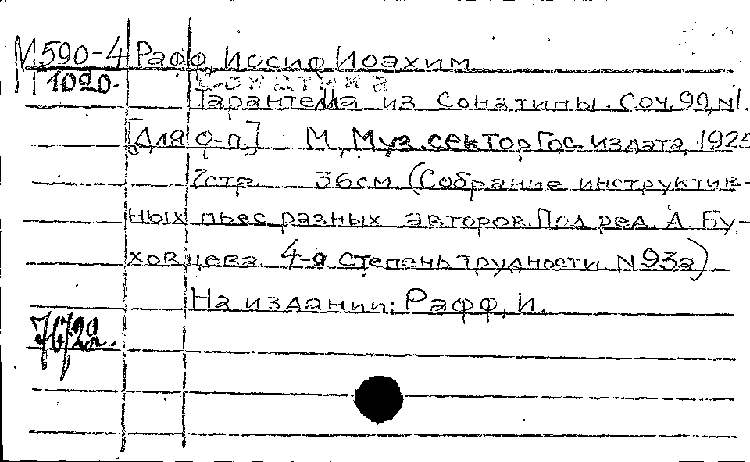 М 590-4 Рафф, Иосиф Иоахим
1020. Сонатина
Тарантелла из Сонатины. Соч. 99, №1.
[Для ф-п.] М., Муз. сектор Гос. издата, 192
7стр. 36см (Собрание инструктив-
ных пьес разных авторов. Под ред. А. Бу-
ховцева. 4-я степень трудности. N 93а)
На издании: Рафф, И.